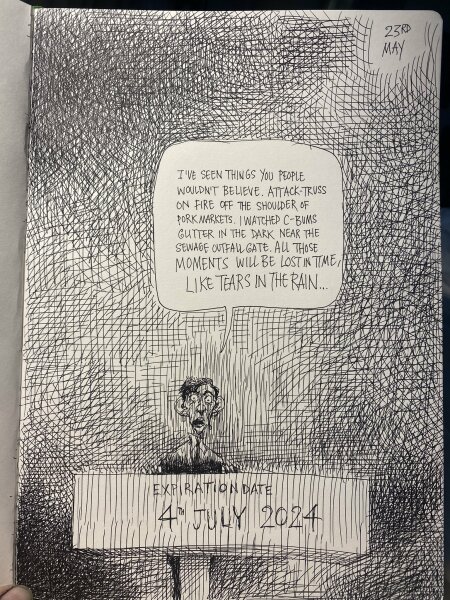 23RD
MAY
I'VE SEEN THINGS YOU PEOPLE
WOULDN'T BELIEVE. ATTACK-TRUSS
ON FIRE OFF THE SHOULDER OF
PORK MARKETS. I WATCHED C-BUMS
GLITTER IN THE DARK NEAR THE
SEWAGE OUTFALL GATE. ALL THOSE
MOMENTS WILL BE LOST IN TIME,
LIKE TEARS IN THE RAIN...
EXPIRATION DATE
4TH JULY 2024